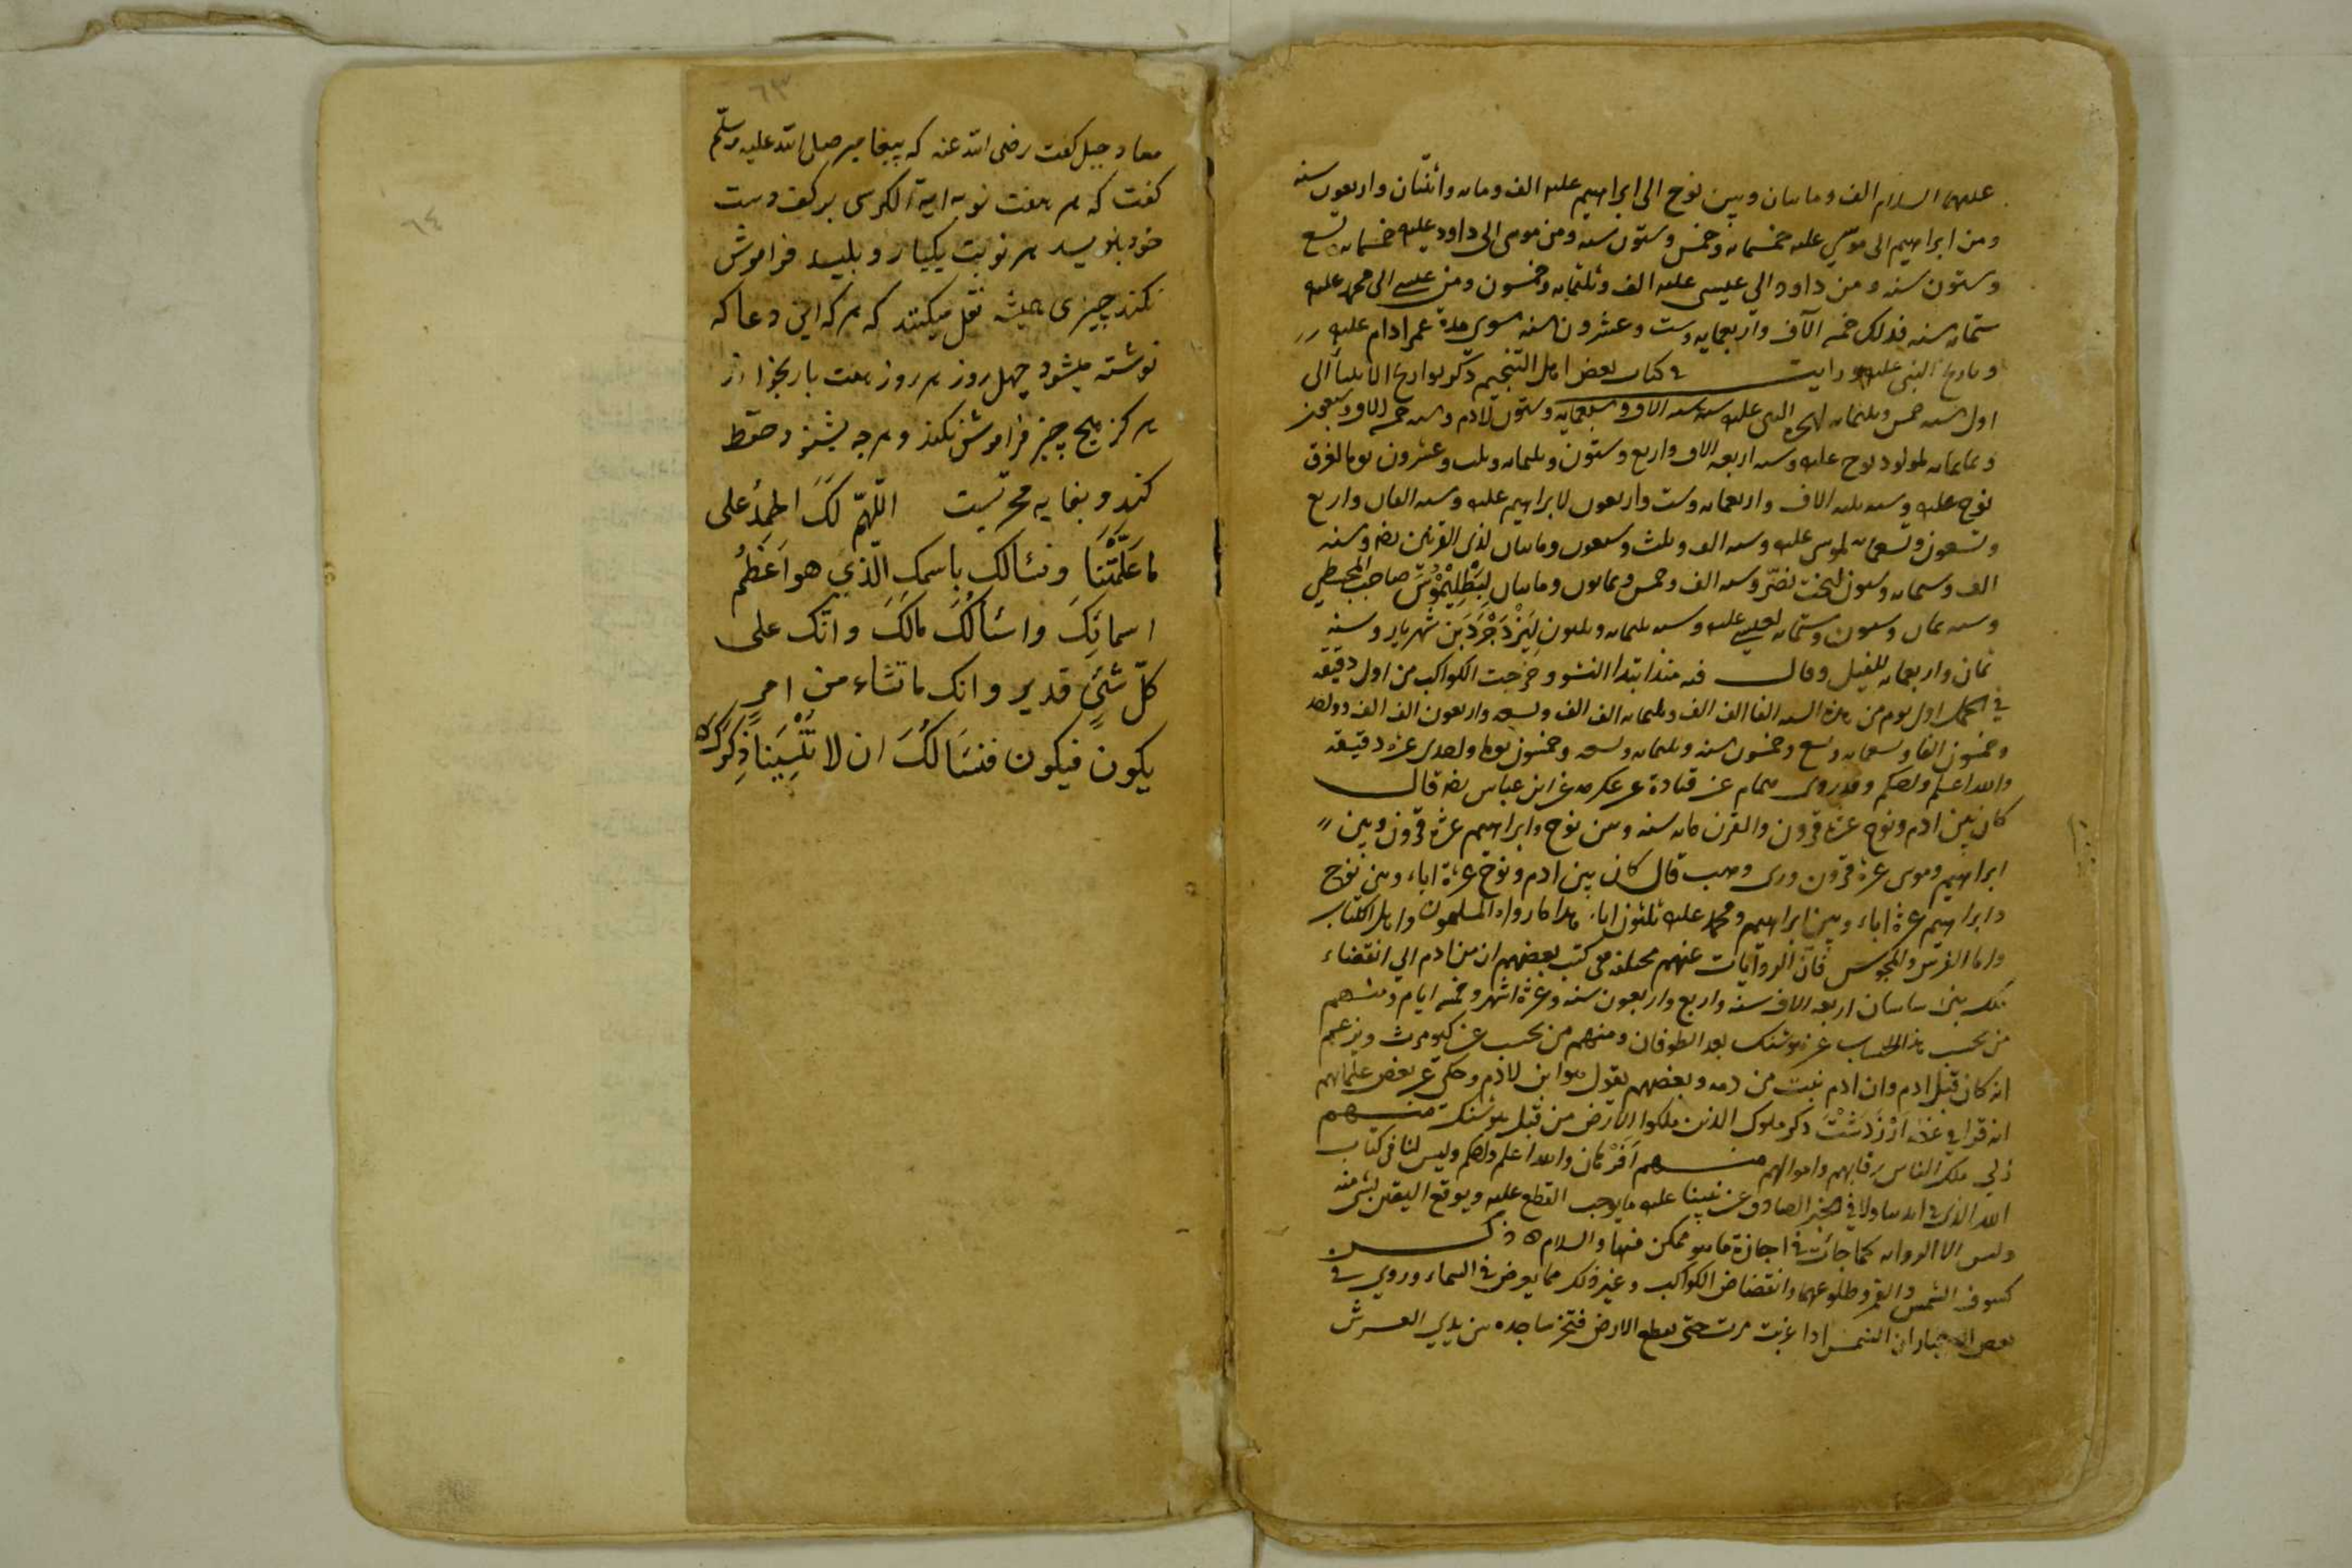 عليهما السلام الف وماىىان وبين نوح الى ابراهيم عليه الف ومايه واثنتان واربعون سنه
ومن ابراهيم الى موسى عليه خمسمايه وخمس وستون سنه ومن موسى الى داود عليه خمسمايه تسع
وستون سنه ومن داود الى عيسى عليه الف وثلثمايه وخمسون ومن عيسى الى محمد عليه
ستمايه سنه فذلك خمسه الآف واربعمايه وست وعشرون سنه سوى مدة عمر ادام عليه
وتاريخ النبى عليه ورايت فى كتاب بعض اهل التنجيم ذكر تواريخ الانبيآ الى
اول سنه خمس وثلثمايه لهجره النبى عليه سنه الاف وسبعمايه وستون لادم وسنه خمسه الاف
وثمانمايه لمولود نوح عليه وسنه اربعه الاف واربع وستون وثلثمايه وثلث وعشرون يوما لغرق
نوح عليه وسنه ثلثه الاف واربعمايه وست واربعون لابراهيم عليه وسنه الفان واربع
وتسعون وتسعمايه لموسى عليه وسنه الف وثلث وسبعون ومايتان لذى القرنين وسنه
الف وستمايه وسبعون لبخت نصّر وسنه الف وخمس وثمانون ومايتان لبَطْلِيْمُوْسَ صاحب المجسطي
وسنه ثمان وسبعون وستمايه لعيسى عليه وسنه ثلثمايه وثلثون لِيَزْدَجْرَدَ بن شهريار وسنه
ثمان واربعمايه للفيل وقال فيه منذ ابتدا النشو وخرجت الكواكب من اول دقيقه
فى الحمل اول يوم من هذه السنه الفا الف الف وثلثمايه الف الف وتسعه واربعون الف الف
وخمسون الفا وسبعمايه وتسع وخمسون سنه وثلثمايه وتسعه وخمسون يوما واحدى عشره دقيقه
والله اعلم واحكم وقد روى همام عن قتادة عن عكرمه عن ابن عباس رضه قال
كان بين ادم ونوح عشرة قرون والقرن مايه سنه وبين نوح وابراهيم عشرة قرون وبين
ابراهيم وموسى عشرة قرون وروى وهب قال كان بين ادم ونوح عشرة اباء وبين نوح
وابراهيم عشرة اباء وبين ابراهيم ومحمد عليه ثلثون ابا هذا ما رواه المسلمون واهل الكتاب
واما الفرس والمجوس فان الروآيات عنهم مختلفه فى كتب بعضهم ان من ادم الى انقضاء
ملك بنى ساسان اربعه الاف سنه واربع واربعون سنه وعشرة اشهر وخمسه ايام ومنهم
من يحسب هذا الحساب عن هوشنك بعد الطوفان ومنهم من يحسب عن كيومرث ويزعم
انه كان قبل ادم وان ادم نبت من دمه وبعضهم يقول هو ابن لادم وحكى عن بعض علمائهم
انه قرا فى اَرْزَدَشْتَ ذكر ملوك الذين ملكوا الارض من قبل هوشنك منهم
ذلى ملك الناس رقابهم واموالهم منهم اَفَرْهان والله اعلم واحكم وليس لنا فى كتاب
الله الذى فى ايدينا ولا فى الخبر الصادق عن نبينا عليه ما يوجب القطع عليه ويوقع اليقين بشى منه
وليس الا الروايه كما جائت فى اجازة ما هو ممكن منها والسلام ه ذكر
كسوف الشمس والقمر وطلوعهما وانقضاض الكواكب وغير ذلك مما يعرض فى السماء وروى فى
بعض الاخبار ان الشمس اذا غربت مرت حتى تقطع الارض فتخر ساجده بين يدى العرش
٦٣
معاد جبل گفت رضى الله عنه كه پيغامبر صلى الله عليه وسلّم
گفت كه هر هفت نوبه اية الكرسى بر كف دست
خود بنويسد هر نوبت يكبار و بليسد فراموش
نكند چيزى هميشه نقل ميكنند كه هر كه اين دعا كه
نوشته ميشود چهل روز هر روز هفت بار بخواند
هركز هيچ چيز فراموش نكند و هرچه بشنود حفظ
كند و بغايه مجرّبست اللّهمّ لكَ الحمدُ على
ما عَلَّمْتَنَا ونسئالك باسمك الّذي هو اَعْظَمُ
اسمائِكَ واسئالُكَ مالكَ وانّك على
كلّ شئٍ قدير وانك ما تشاء من امرٍ
يكون فيكون فنسَالكَُ ان لا تُنْسِيَنا ذِكرَكَ ه
٦٤